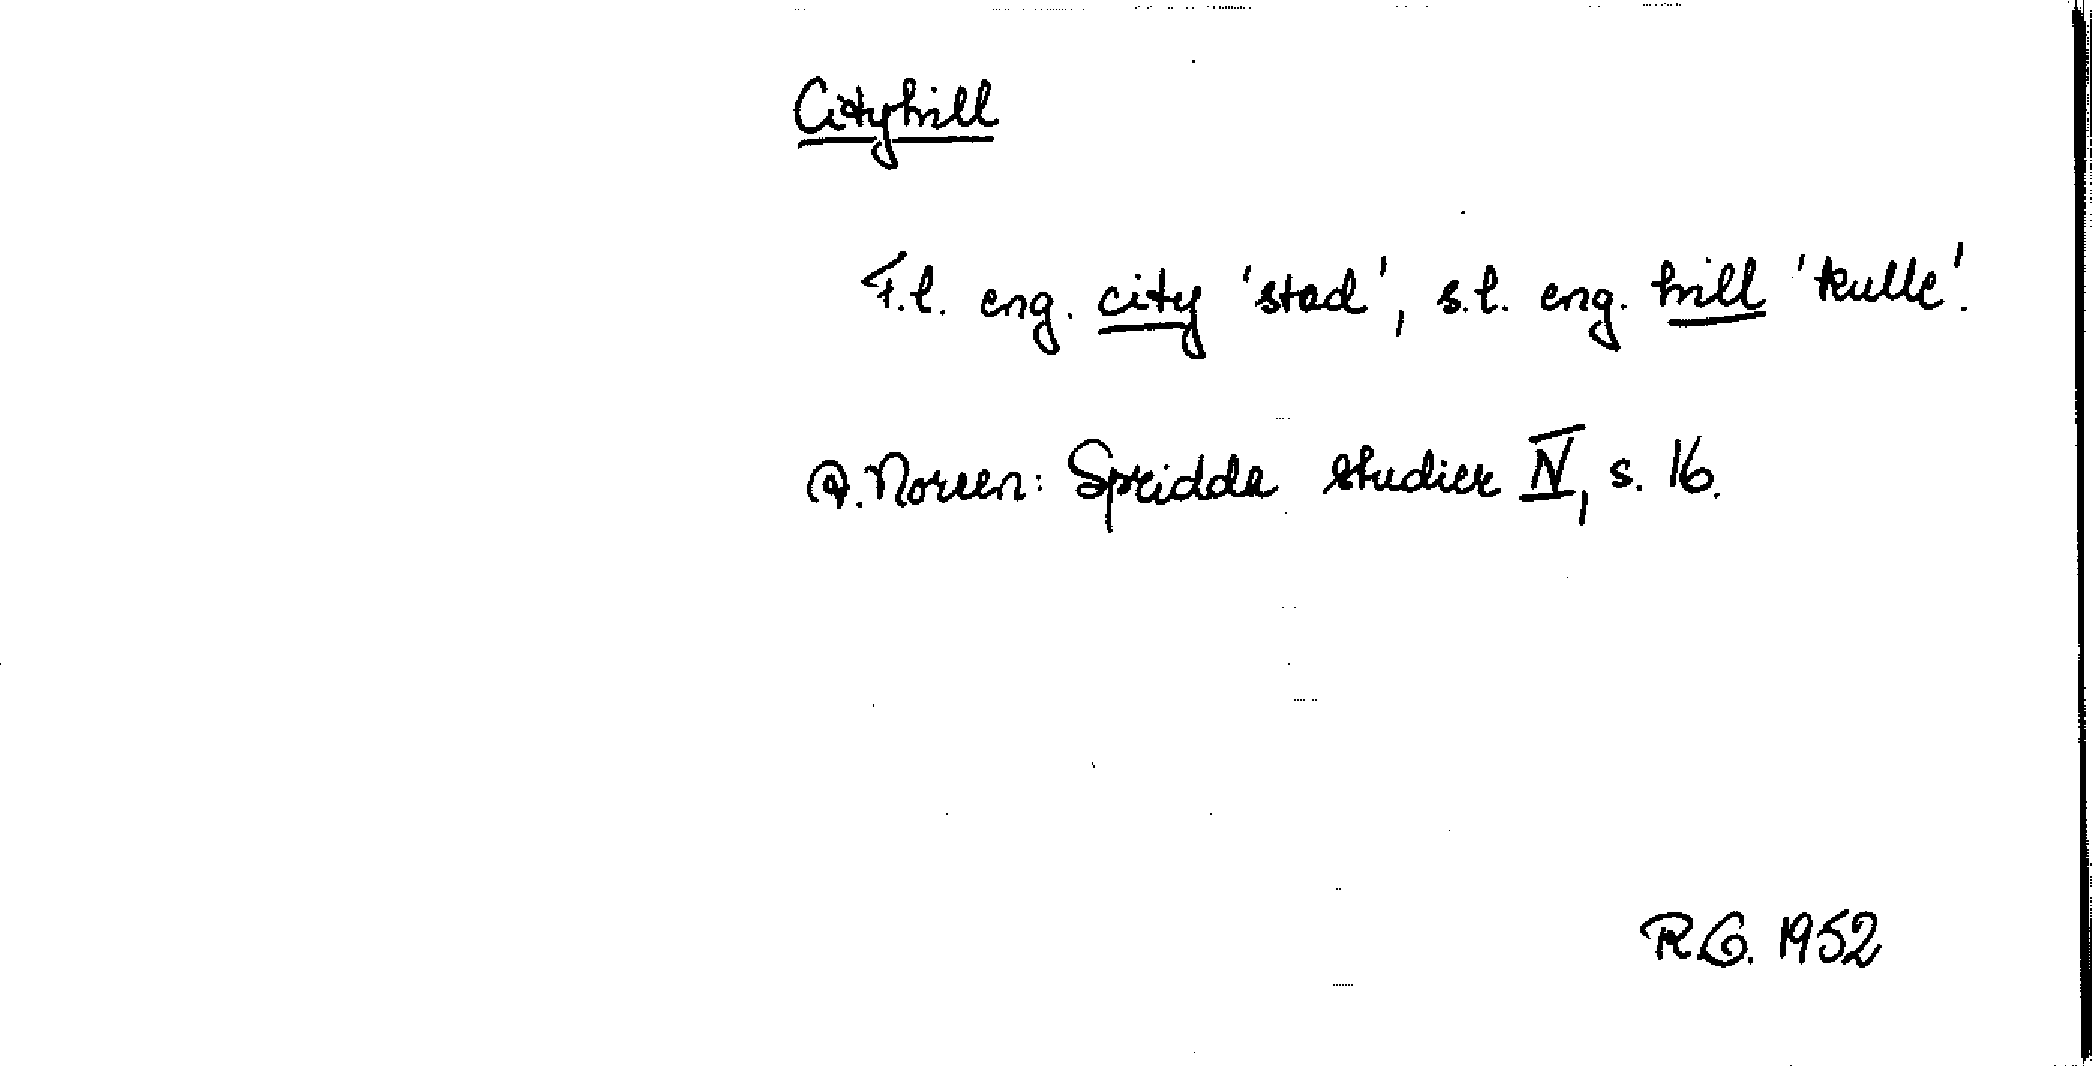 Cityhill
F.l. eng. city 'stad', s.l. eng. hill 'kulle'.
A. Noreen: Spridda studier IV, s. 16.
R.G. 1952